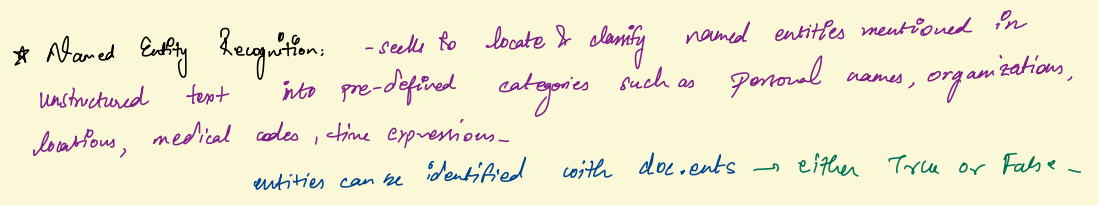 ☆ Named Entity Recognition: - seeks to locate & classify named entities mentioned in
unstructured text into pre-defined categories such as personal names, organizations,
locations, medical codes, time expressions_
entities can be identified with doc.ents → either True or False_